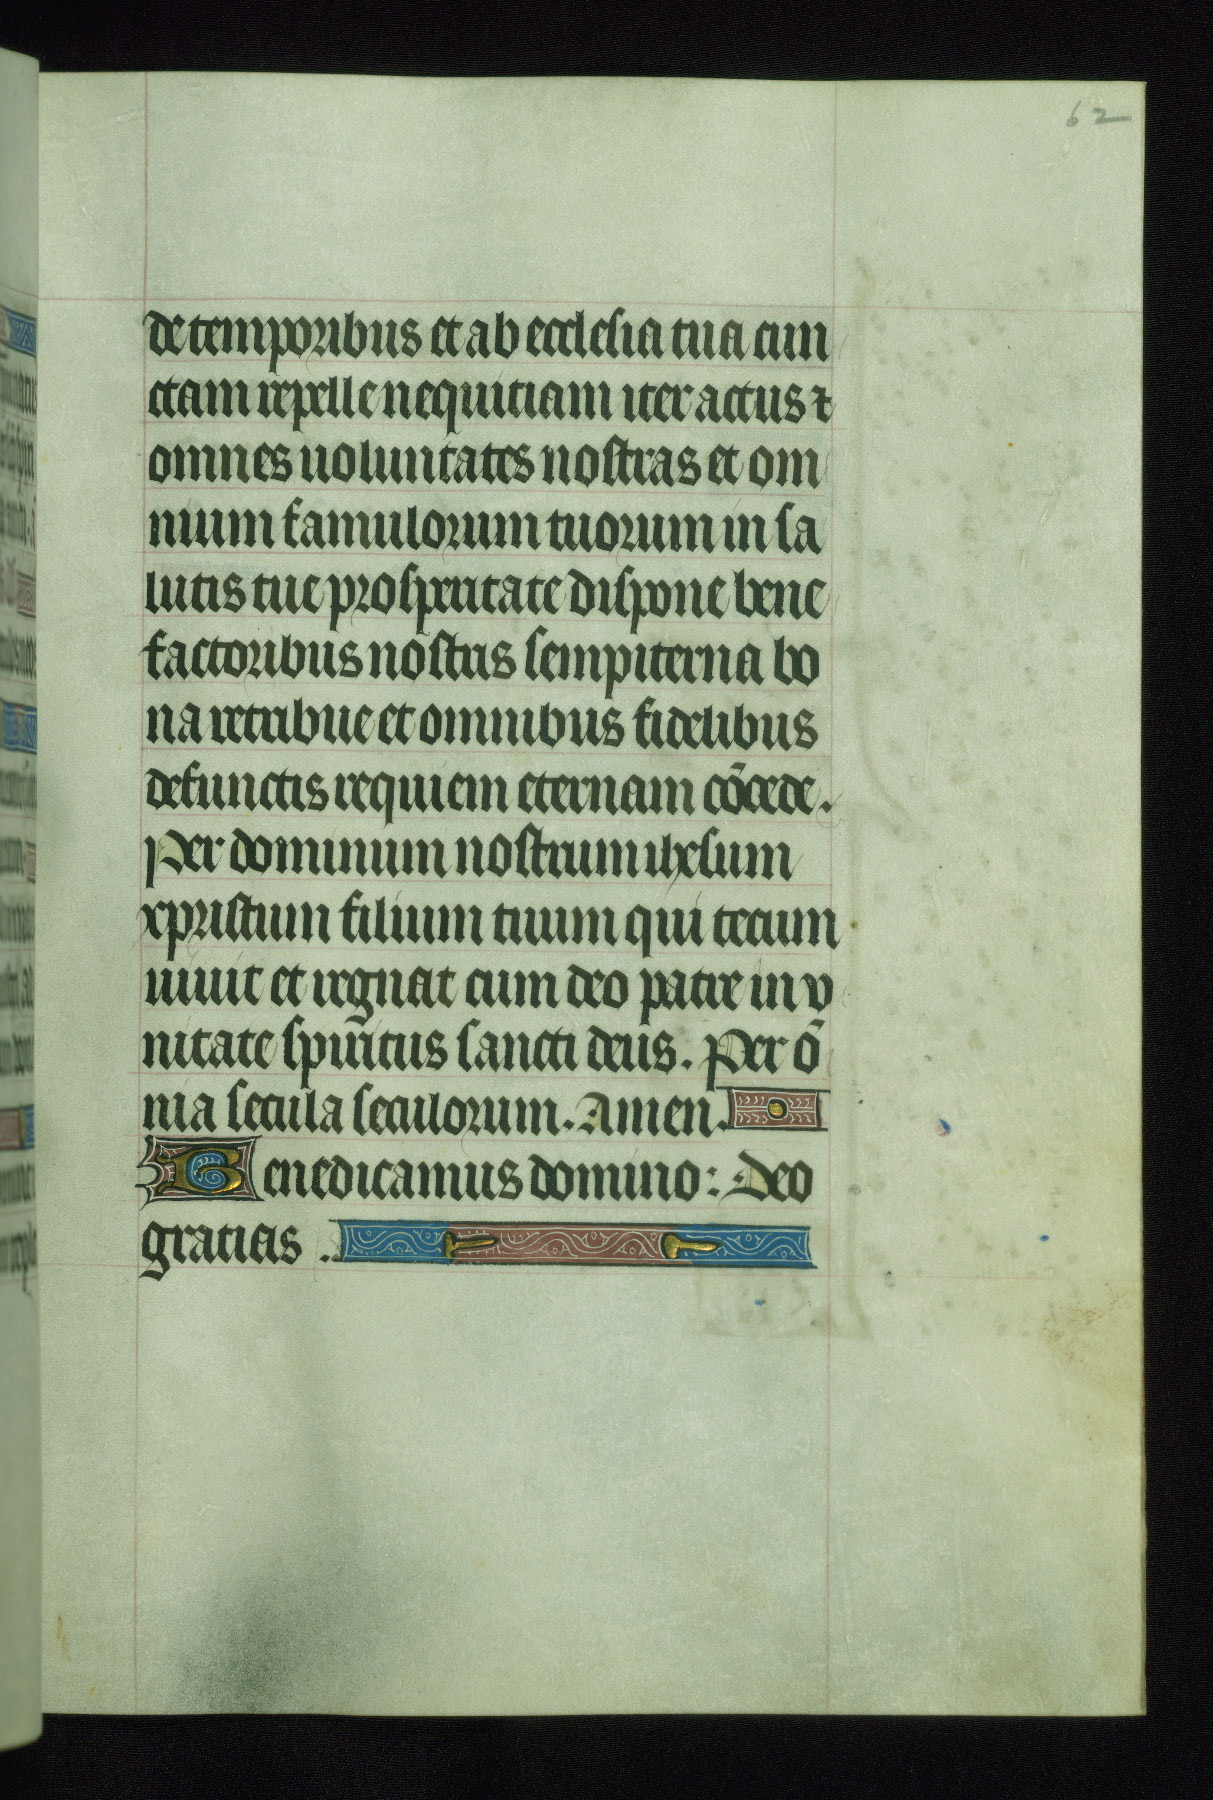 62
de temporibus et ab ecclesia tua cun
ctam repelle nequitiam iter actus ⁊
omnes uoluntates nostras et om
nium famulorum tuorum in sa
lutis tue prosperitate dispone bene
factoribus nostris sempiterna bo
na retribue et omnibus fidelibus
defunctis requiem eternam cōcede.
Per dominum nostrum ihesum
xpristum filium tuum qui tecum
uiuit et regnat cum deo patre in v
nitate spiritus sancti deus. Per ō
nia secula seculorum. Amen.
Benedicamus domino: Deo
gracias.